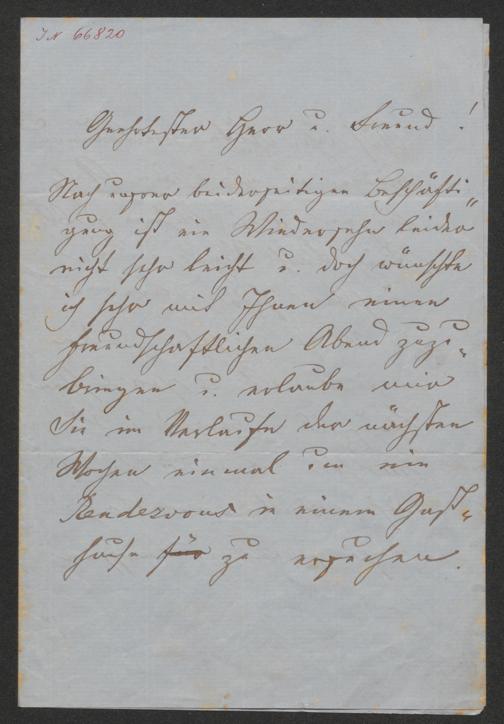 IN 66820
Geehrtester Herr u. Freund!
Nach unserer beiderseitigen Beschäfti-
gung ist ein Wiedersehn leider
nicht sehr leicht u. doch wünschte
ich sehr mit Ihnen einen
freundschaftlichen Abend zuzu-
bringen u. erlaube mir
Sie im Verlaufe der nächsten
Wochen einmal um ein
Rendezvous in einem Gast-
hause für zu ersuchen.